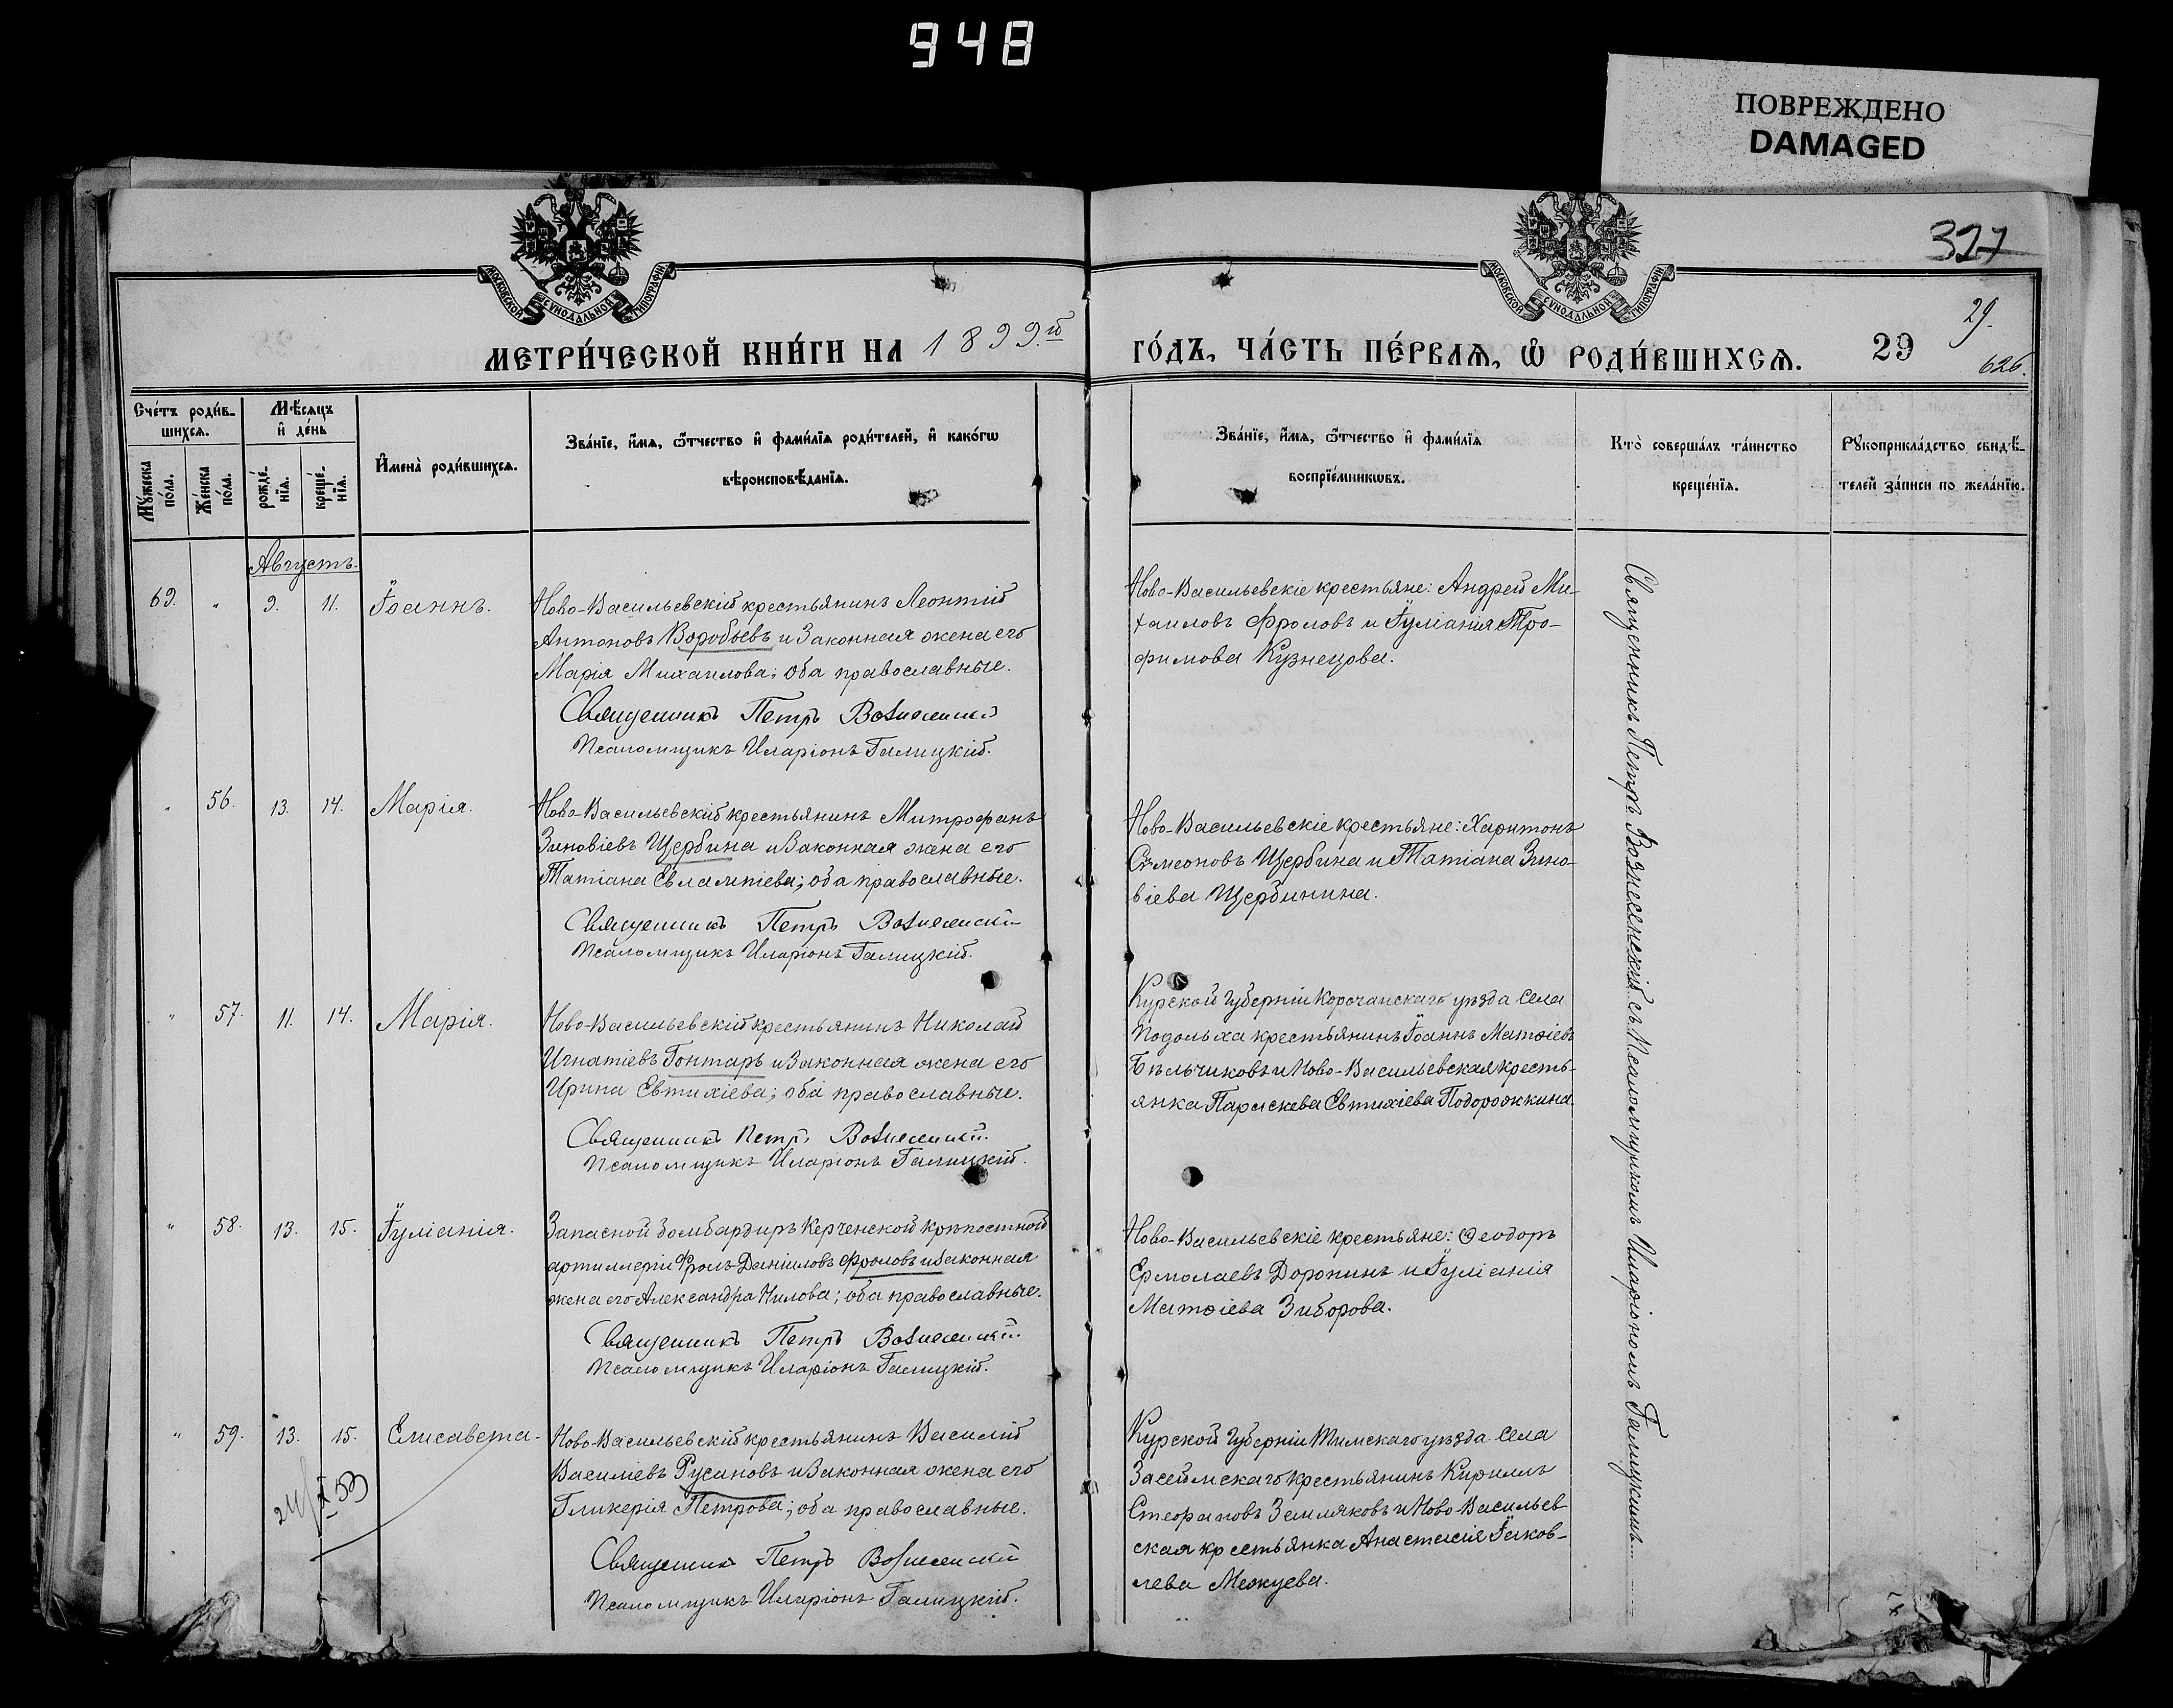 948
ПОВРЕЖДЕНО
DAMAGED
МОСКОВСКОЙ СѴНОДАЛЬНОЙ ТИПОГРАФІИ
МОСКОВСКОЙ СѴНОДАЛЬНОЙ ТИПОГРАФІИ
327
29.
626.
МЕТРИ́ЧЕСКОЙ КНИ́ГИ НА 1899.й
ГО́ДЪ, ЧА́СТЬ ПЕ́РВАѦ, Ѽ РОДИ́ВШИХСѦ. 29
Сче́тъ роди́в-
шихсѧ.
Мꙋ́жеска по́ла.
Же́нска по́ла.
Мѣ́сѧцъ
и҆ де́нь
рожде́-
нїѧ.
креще́-
нїѧ.
И҆мена̀ роди́вшихсѧ.
Зва́нїе, и҆́мѧ, ѻ҆́тчество и҆ фами́лїѧ роди́телей, и҆ како́гѡ
вѣроисповѣ́данїѧ.
Зва́нїе, и҆́мѧ, ѻ҆́тчество и҆ фами́лїѧ
воспрїе́мникѡвъ.
Кто̀ соверша́лъ та́инство
креще́нїѧ.
Рꙋкоприкла́дство свидѣ́-
телей за́писи по жела́нїю.
Августъ.
69. " 9. 11. Іоаннъ.
Ново-Васильевскій крестьянинъ Леонтій
Антоновъ Воробьевъ и законная жена его
Марія Михаилова; оба православные.
Священникъ Петръ Вознесенскій
Псаломщикъ Иларіонъ Галицкій.
Ново-Васильевскіе крестьяне: Андрей Ми-
хаиловъ Фроловъ и Іуліанія Тро-
фимова Кузнецова.
" 56. 13. 14. Марія.
Ново-Васильевскій крестьянинъ Митрофанъ
Зиновіевъ Щербина и законная жена его
Татіана Евлампіева; оба православные.
Священникъ Петръ Вознесенскій
Псаломщикъ Иларіонъ Галицкій.
Ново-Васильевскіе крестьяне: Харитонъ
Симеоновъ Щербина и Татіана Зино-
віева Щербинина.
" 57. 11. 14. Марія.
Ново-Васильевскій крестьянинъ Николай
Игнатіевъ Гонтарь и законная жена его
Ирина Евтихіева; оба православные.
Священникъ Петръ Вознесенскій.
Псаломщикъ Иларіонъ Галицкій.
Курской губерніи Корочанскаго уѣзда села
Подольха крестьянинъ Іоаннъ Матѳіевъ
Бѣльчиковъ и Ново-Васильевская кресть-
янка Параскева Евтихіева Подорожкина.
" 58. 13. 15. Іуліанія.
Запасной бомбардиръ Керченской крѣпостной
артиллеріи Фролъ Даніиловъ Фроловъ и законная
жена его Александра Нилова; оба православные.
Священникъ Петръ Вознесенскій.
Псаломщикъ Иларіонъ Галицкій.
Ново-Васильевскіе крестьяне: Ѳеодоръ
Ермолаевъ Доронинъ и Іуліанія
Матѳіева Зиборова.
" 59. 13. 15. Елисавета.
Ново-Васильевскій крестьянинъ Василій
Василіевъ Русановъ и законная жена его
Гликерія Петрова; оба православные.
Священникъ Петръ Вознесенскій
Псаломщикъ Иларіонъ Галицкій.
Курской губерніи Тимскаго уѣзда села
Засеймскаго крестьянинъ Кириллъ
Стефановъ Земляковъ и Ново-Васильев-
ская крестьянка Анастасія Іаков-
лева Межуева.
Священникъ Петръ Вознесенскій съ Псаломщикомъ Иларіономъ Галицкимъ.